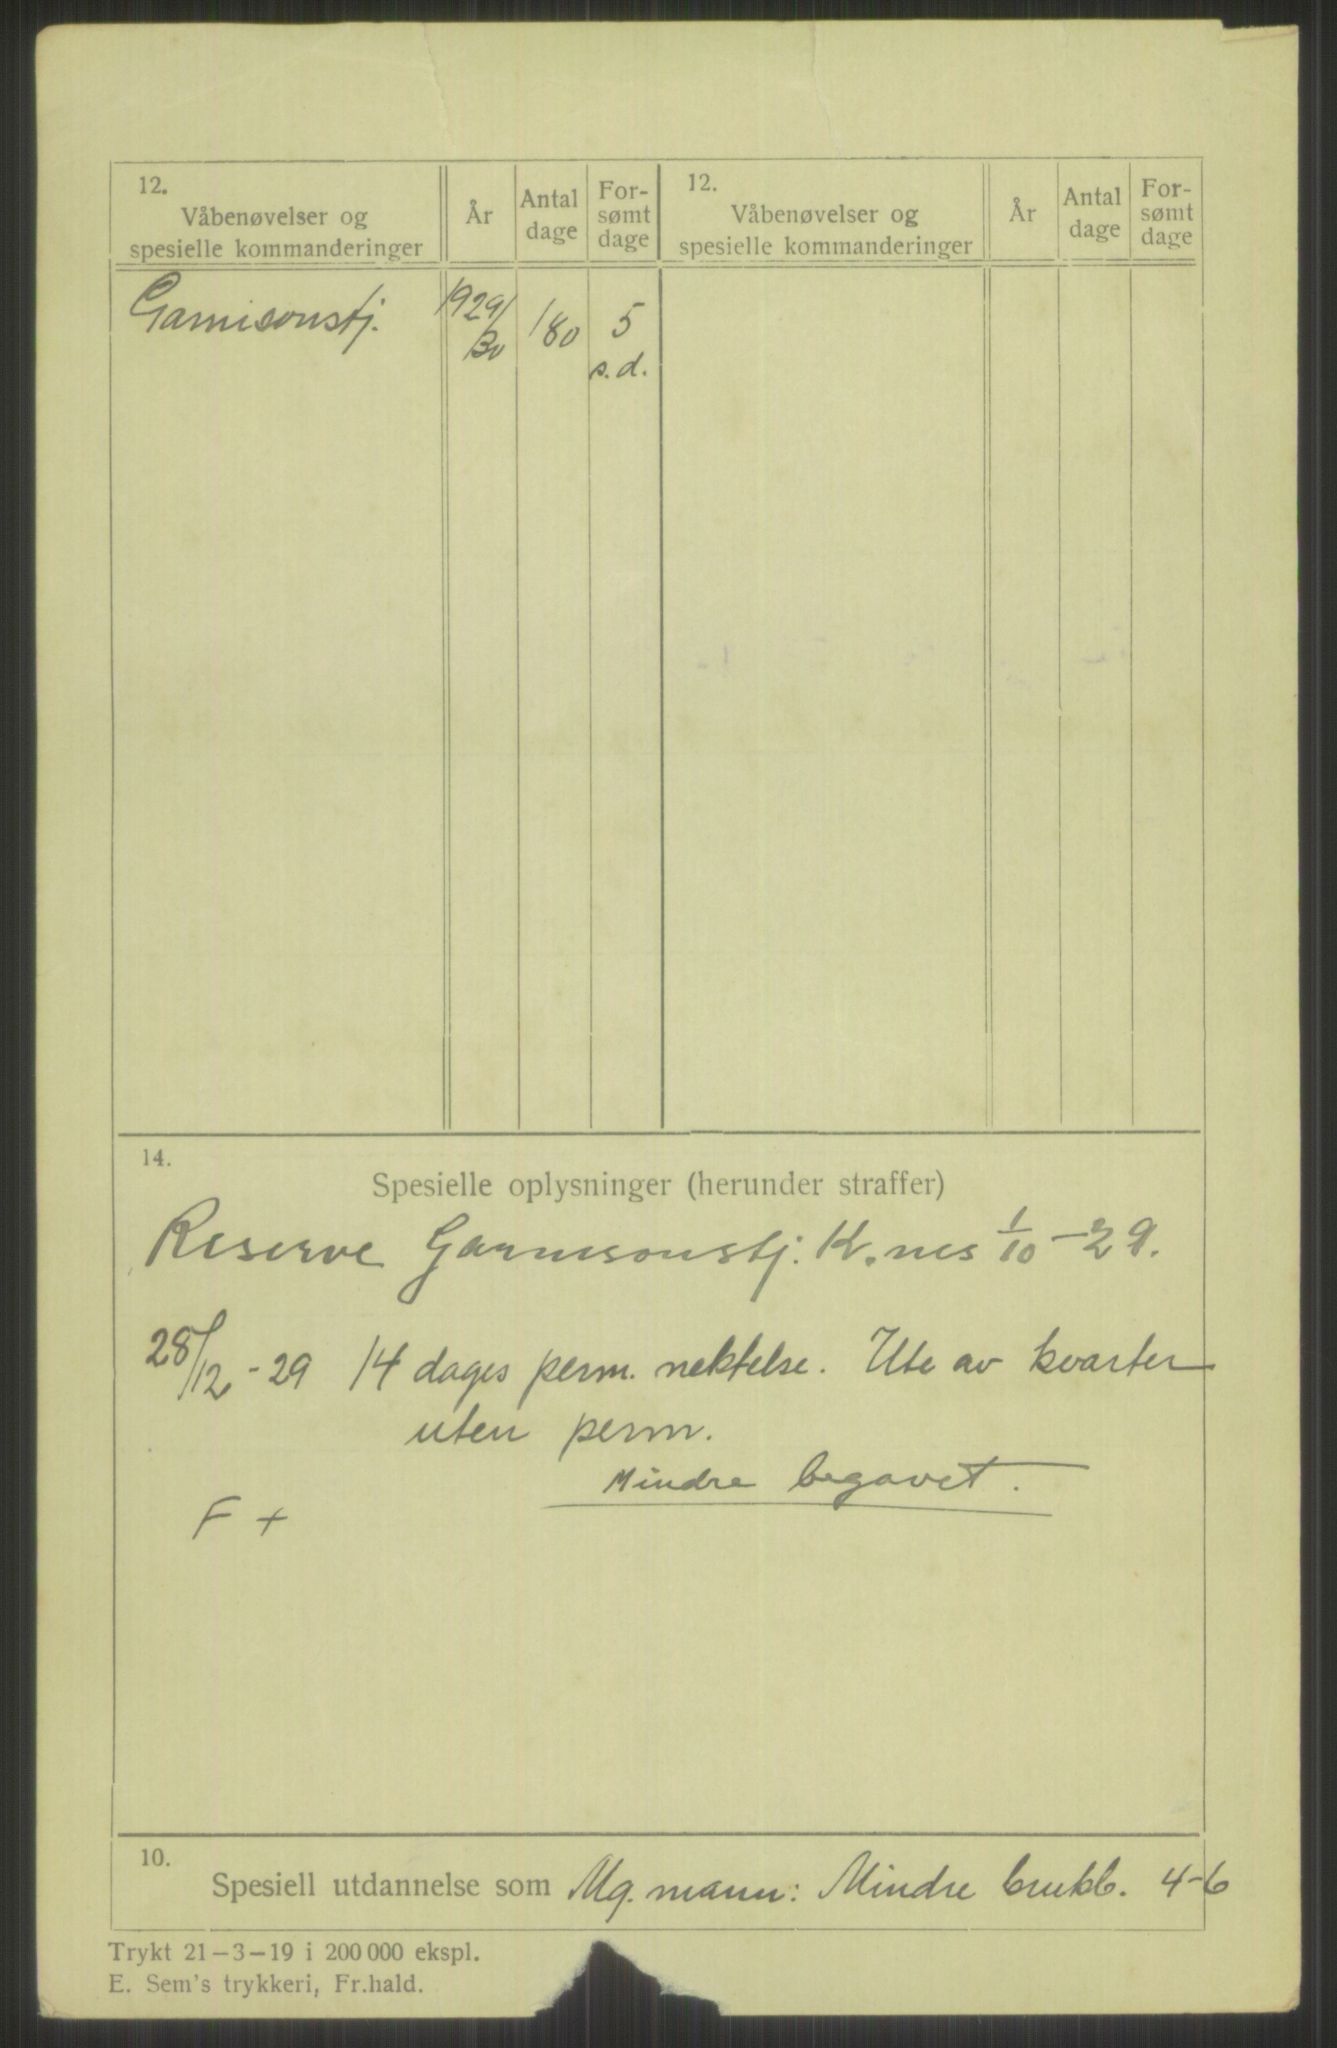 12.
Våbenøvelser og
spesielle kommanderinger
År
Antal
dage
For-
sømt
dage
12.
Våbenøvelser og
spesielle kommanderinger
År
Antal
dage
For-
sømt
dage
Garnisonstj. 1929/30 180 5
s.d.
14.
Spesielle oplysninger (herunder straffer)
Reserve Garnisonstj. K.nes 1/10 -29.
28/12 - 29 14 dages perm. nektelse. Ute av kvarter
uten perm.
Mindre begavet.
F +
10.
Spesiell utdannelse som Mg. mann: Mindre brukb. 4-6
Trykt 21-3-19 i 200 000 ekspl.
E. Sem's trykkeri, Fr.hald.